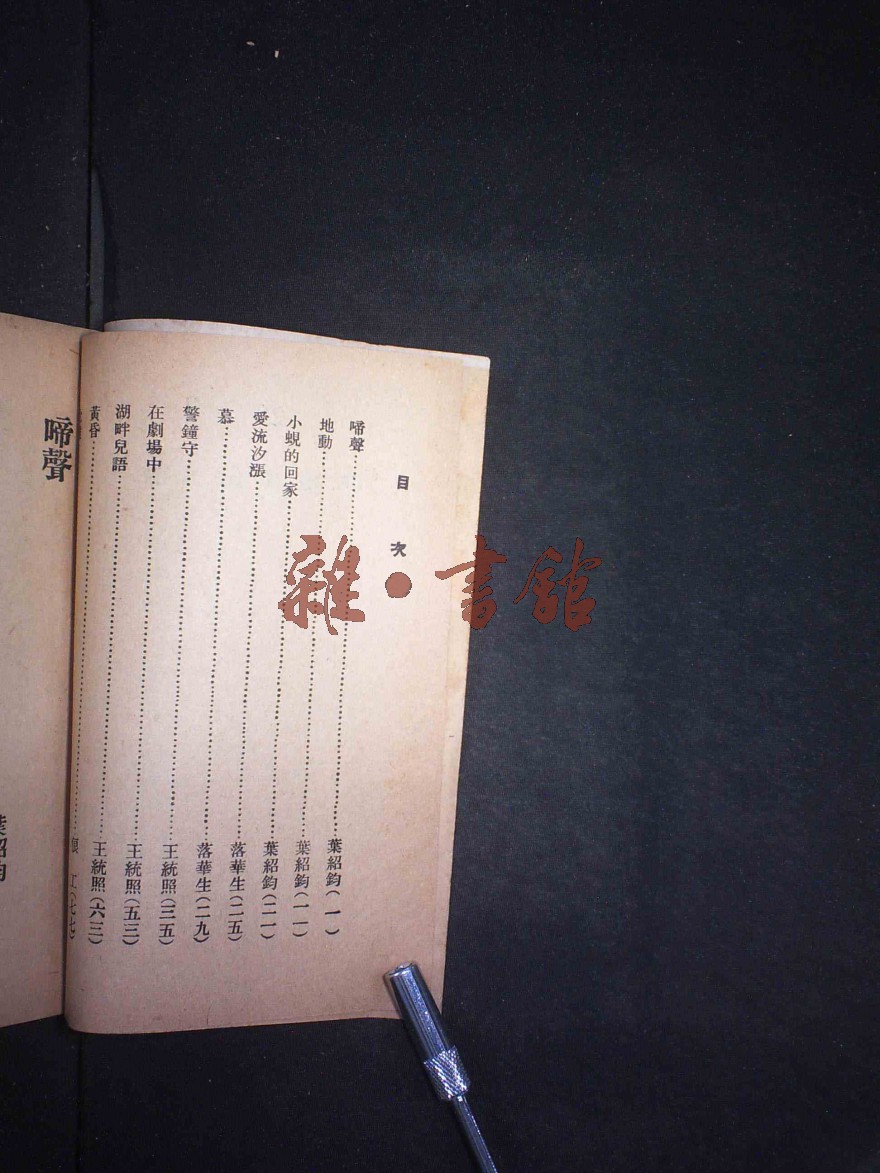 目次
啼聲……葉紹鈞(一)
地動……葉紹鈞(一一)
小蜆的回家……葉紹鈞(二一)
愛流汐漲……落華生(二五)
慕……落華生(二九)
警鐘守……王統照(三五)
在劇場中……王統照(五三)
湖畔兒語……王統照(六三)
黃昏……(七七)
啼聲
葉紹鈞
雜·書館